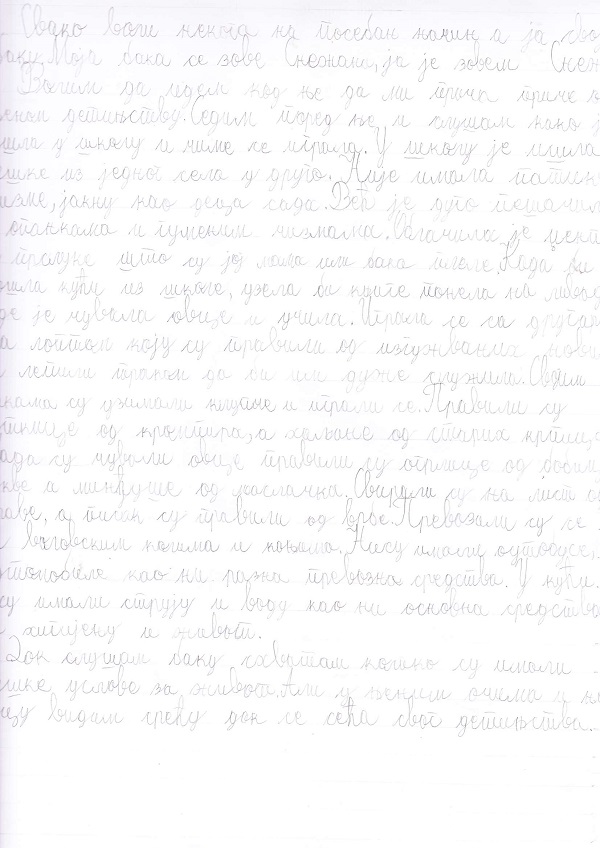 Свако воли некога на посебан начин, а ја свој
баку. Моја бака се зове Снежана, ја је зовем Снеж
Волим да идем код ње да ми прича приче о
еном детињству. Седим поред ње и слушам како ј
шла у школу и чиме се играла. У школу је ишла
ешке из једног села у друго. Није имала патик
изме, јакну као деца сада. Већ је дуго пешачил
опанкама и гуменим чизмама. Облачила је џемп
прслуке што су јој мама или бака плеле. Када би
ошла кући из школе, узела би књиге понела на ливад
де је чувала овце и учила. Играла се са другар
а лоптом коју су правили од изгужваних нови
лепили траком да би им дуже служила. Својим
кама су узимали клипче и играли се. Правили су
од кромпира, а хаљине од старих крпица
ада су чували овце правили су огрлице од бобиц
кве и минђуше од маслачка. Свирали су на лист о
раве, а су правили од врбе. Превозили су се
воловским колима и коњима. Нису имали аутобусе,
утомобиле као ни разна превозна средства. У кући
су имали струју и воду као ни основна средства
хигијену и живот.
Док слушам баку схватам колико су имали
ешке услове за живот. Али у њеним очима и њ
ицу видим срећу док се сећа свог детињства.